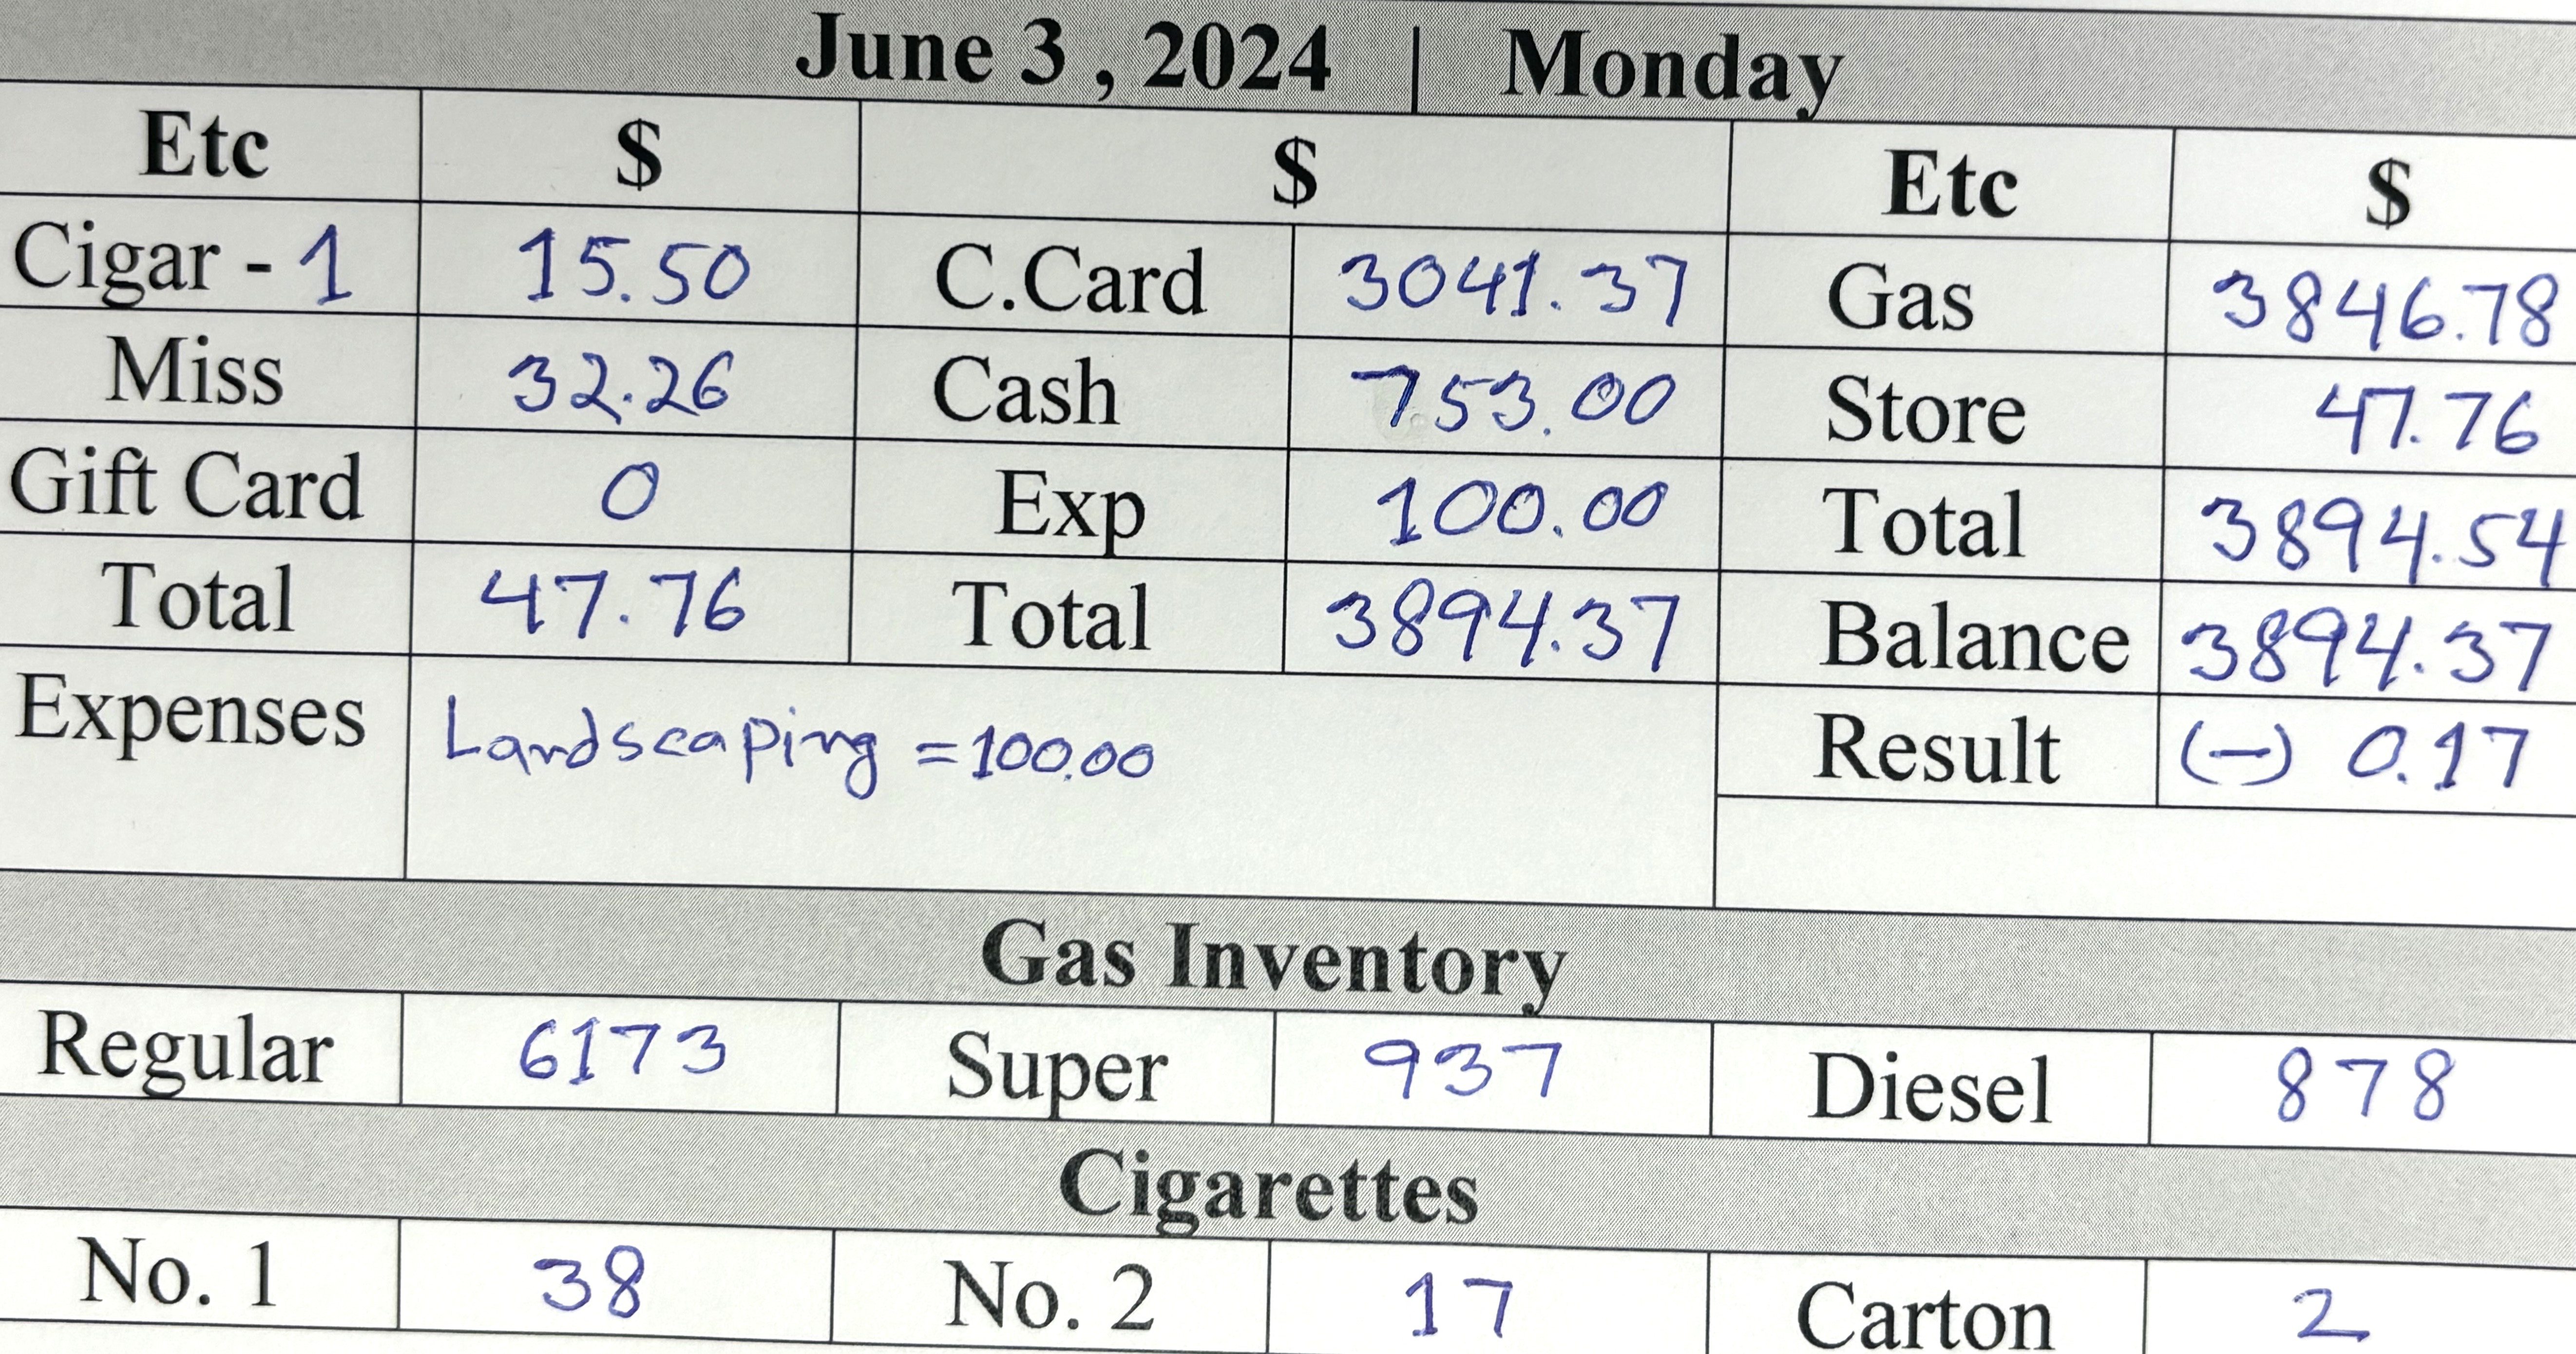 June 3 , 2024 | Monday
Etc $ $ Etc $
Cigar - 1 15.50 C.Card 3041.37 Gas 3846.78
Miss 32.26 Cash 753.00 Store 47.76
Gift Card 0 Exp 100.00 Total 3894.54
Total 47.76 Total 3894.37 Balance 3894.37
Expenses Landscaping = 100.00 Result (-) 0.17
Gas Inventory
Regular 6173 Super 937 Diesel 878
Cigarettes
No. 1 38 No. 2 17 Carton 2